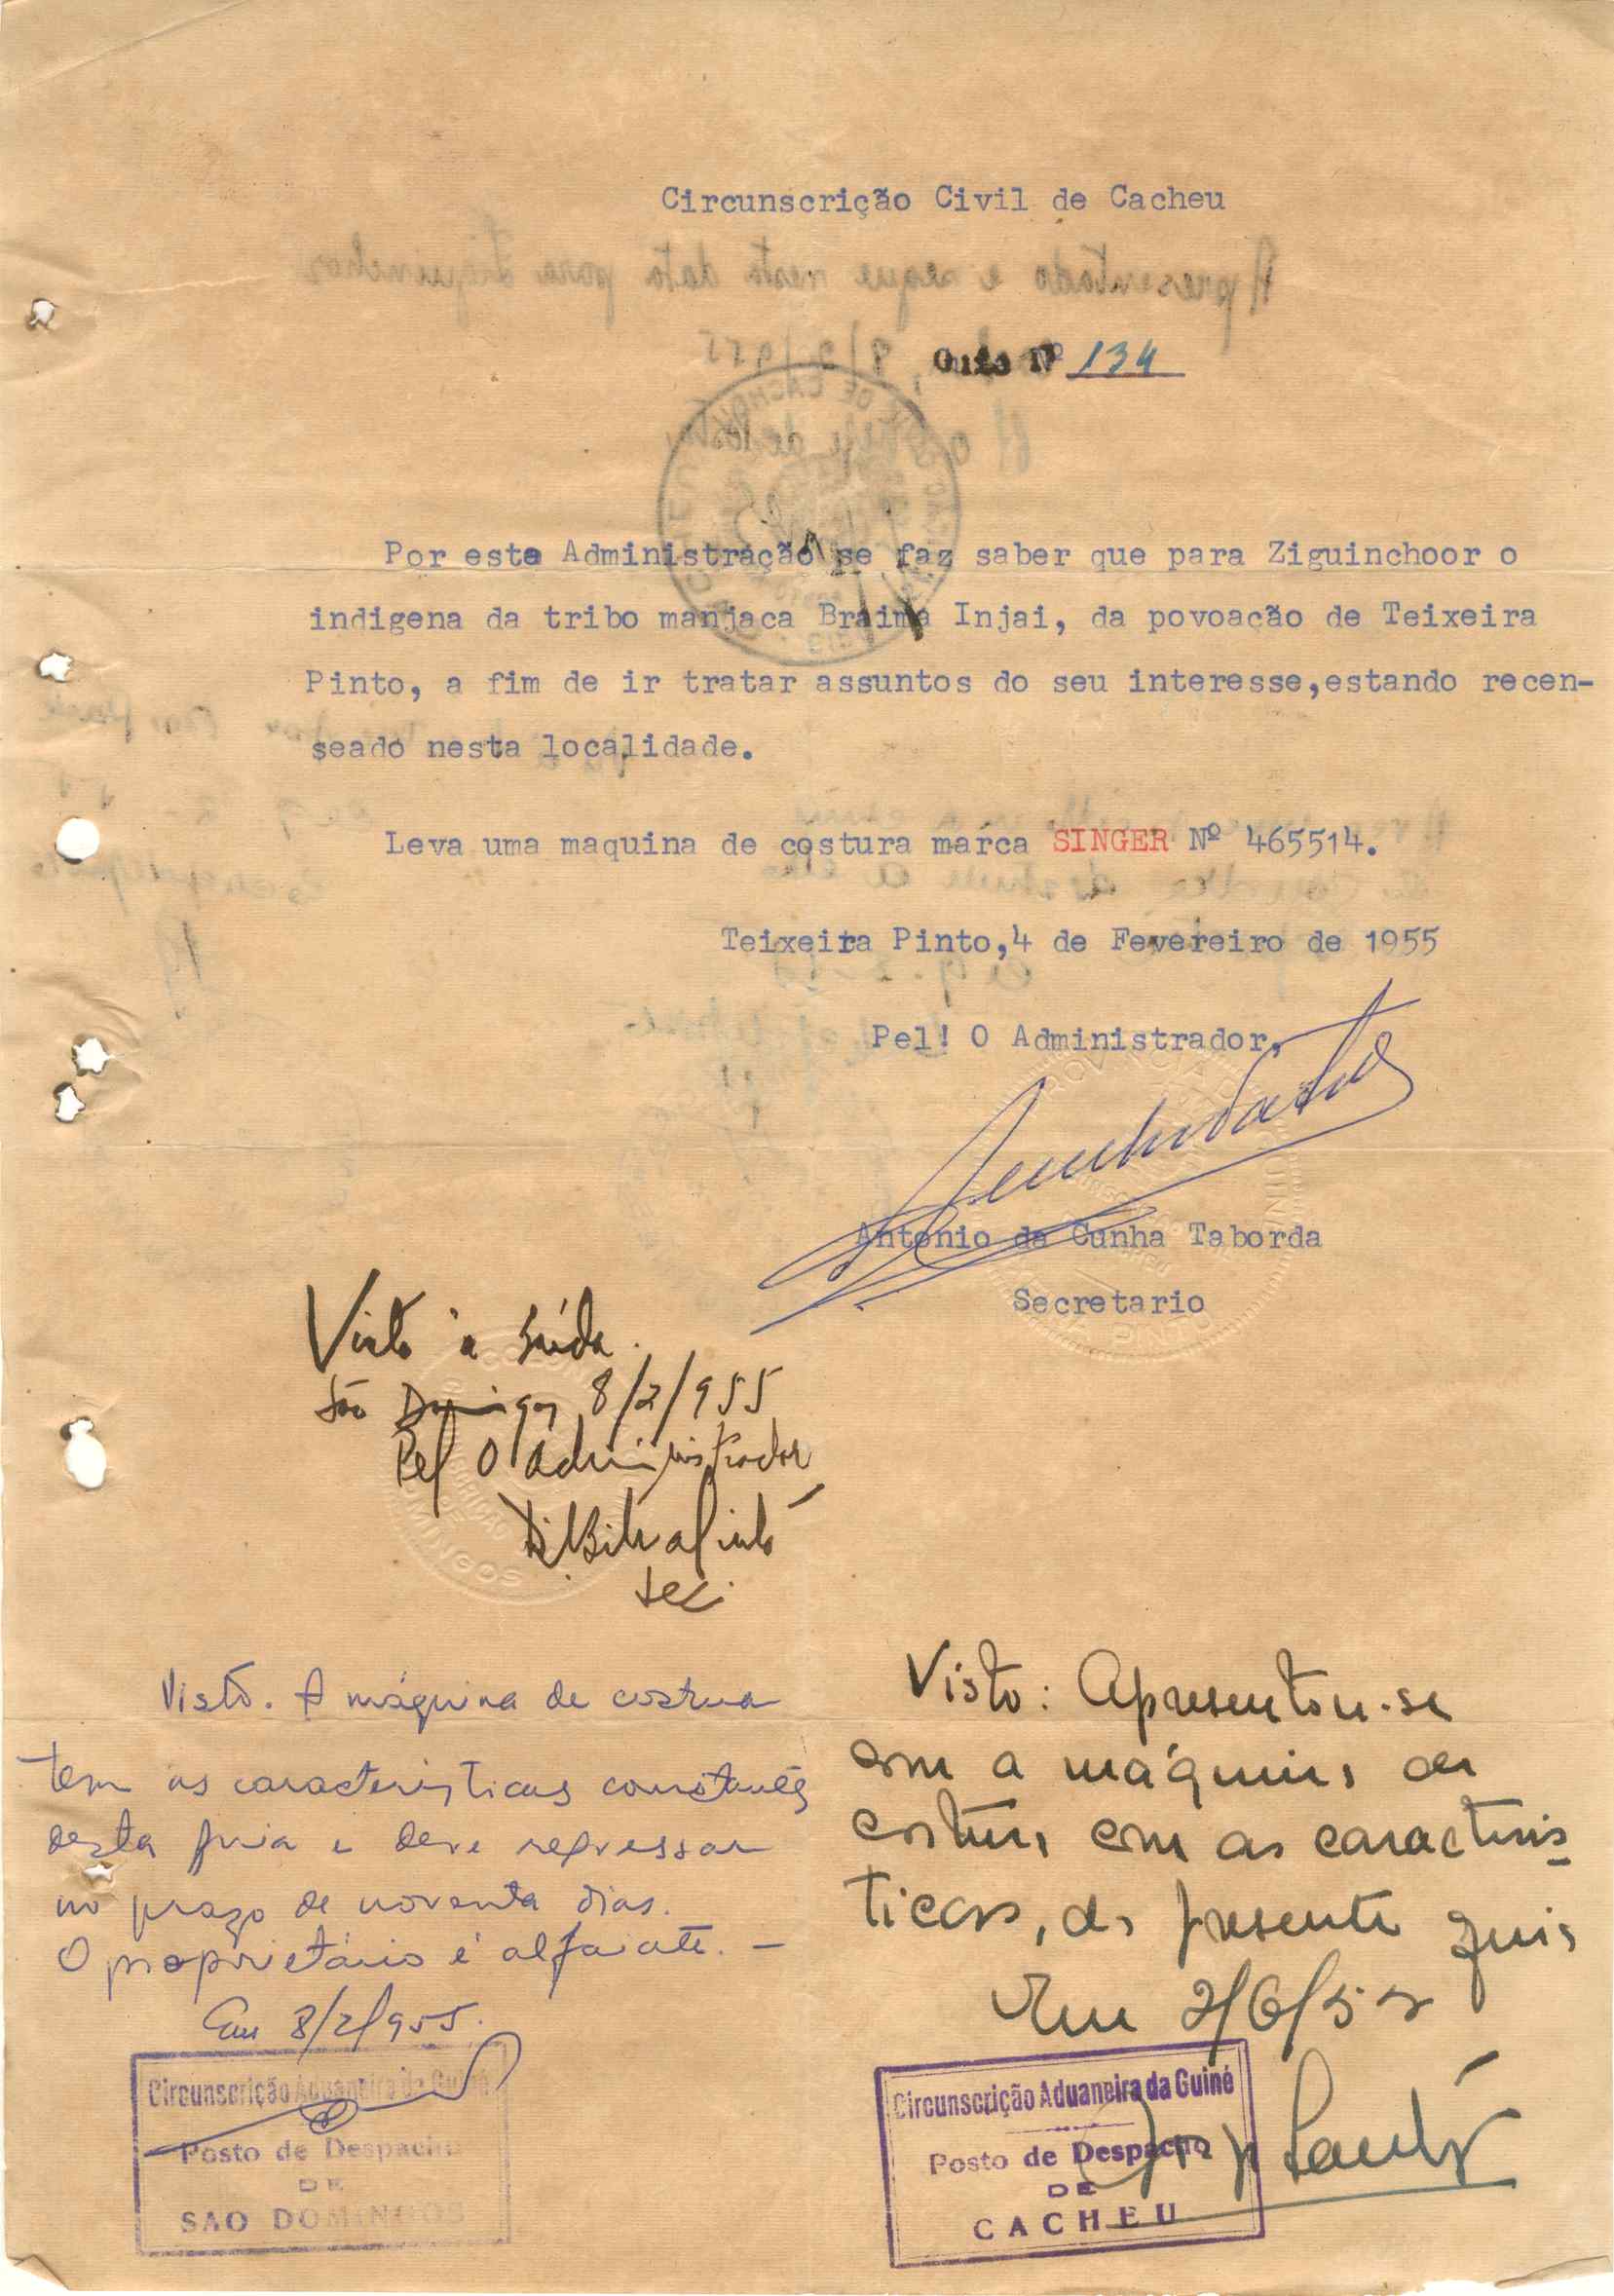 Circunscrição Civil de Cacheu
Guia Nº 134
Por este Administração se faz saber que para Ziguinchoor o
indigena da tribo manjaca Braima Injai, da povoação de Teixeira
Pinto, a fim de ir tratar assuntos do seu interesse,estando recen-
seado nesta localidade.
Leva uma maquina de costura marca SINGER Nº 465514.
Teixeira Pinto,4 de Fevereiro de 1955
Pel! O Administrador,
Antonio da Cunha Taborda
Secretario
Visto à saída.
São Domingos 8/2/955
Pel O Administrador
Sec.
Visto. A máquina de costura
tem as características constantes
desta guia e deve regressar
no prazo de noventa dias.
O proprietário é alfaiate. —
Em 8/2/955.
Circunscrição Aduaneira da Guiné
Posto de Despacho
DE
SAO DOMINGOS
Visto: Apresentou-se
com a máquina de
costura com as caracteris
ticas, da presente guia
Em 2/6/55
Circunscrição Aduaneira da Guiné
Posto de Despacho
DE
CACHEU